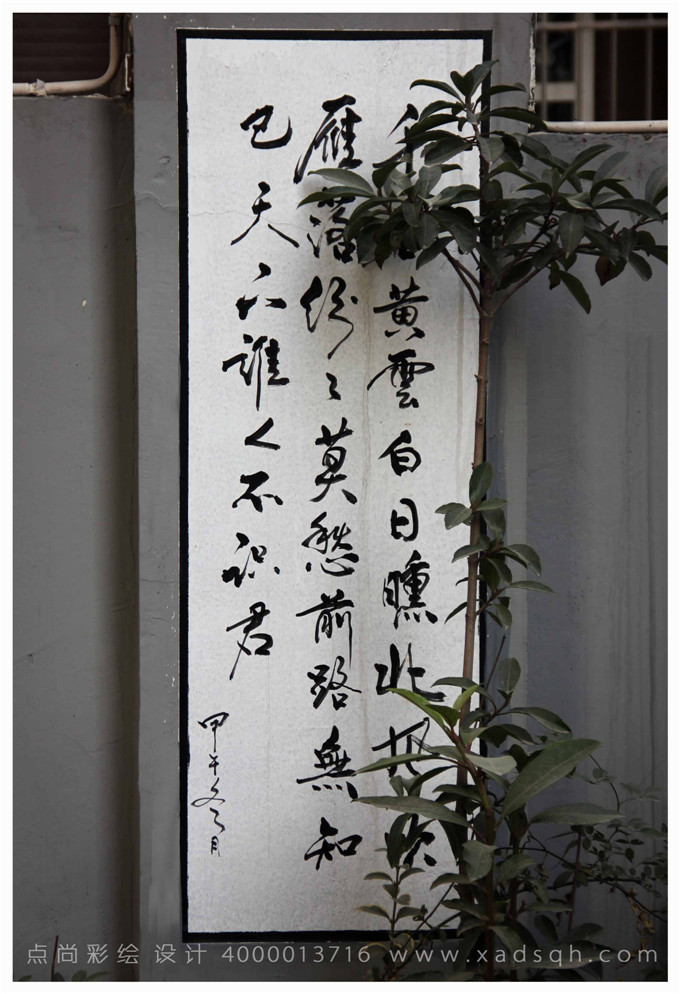 千黄雲白日曛北风吹
雁落纷〻莫愁前路無知
己天下誰人不识君
甲午冬月
点尚彩绘 设计 4000013716 www.xadsqh.com